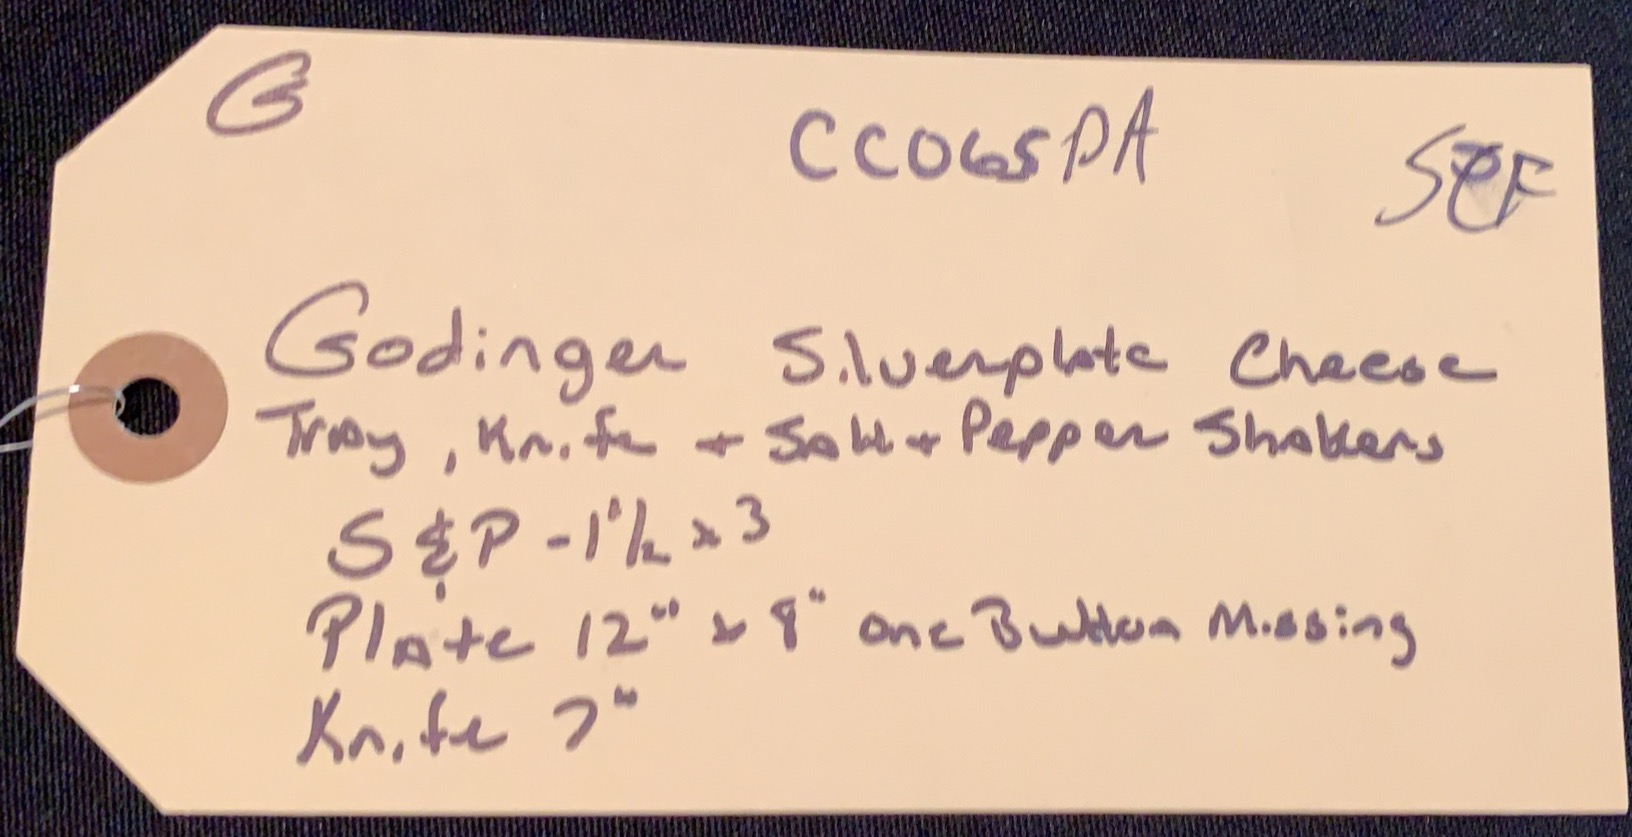 G CC065PA
Godinger Silverplate Cheese
Tray, Knife + Salt + Pepper Shakers
S & P - 1 1/2 x 3
Plate 12" x 8" one Button Missing
Knife 7"